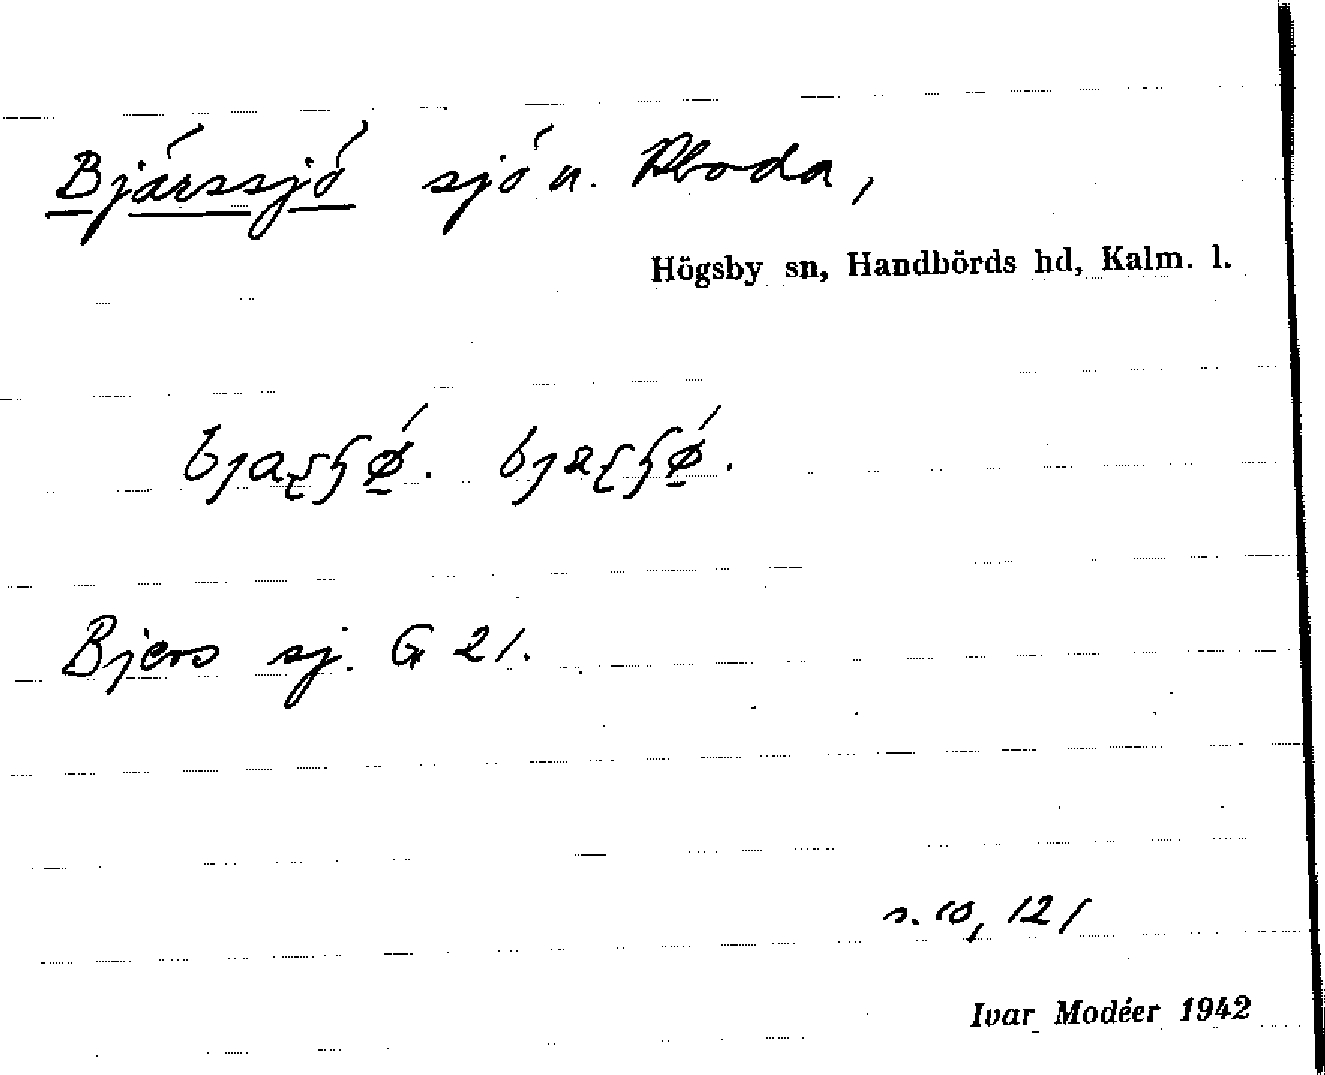 Bjärssjö sjö n. Rboda,
Högsby sn, Handbörds hd, Kalm. l.
Bjers sj. G 21.
s. 10, 121
Ivar Modéer 1942